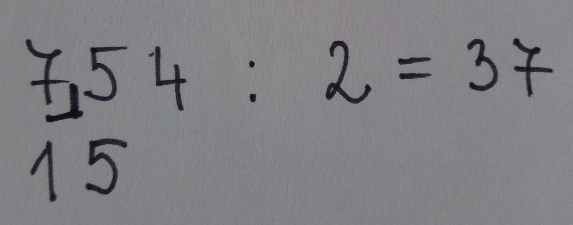 754 : 2 = 37
15